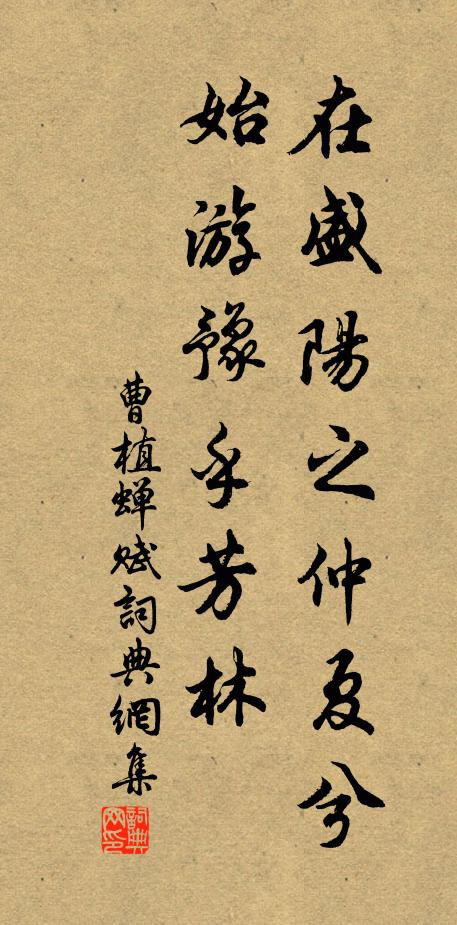 在盛陽之仲夏兮
始游豫乎芳林
曹植蝉賦詞典網集
詞典网印